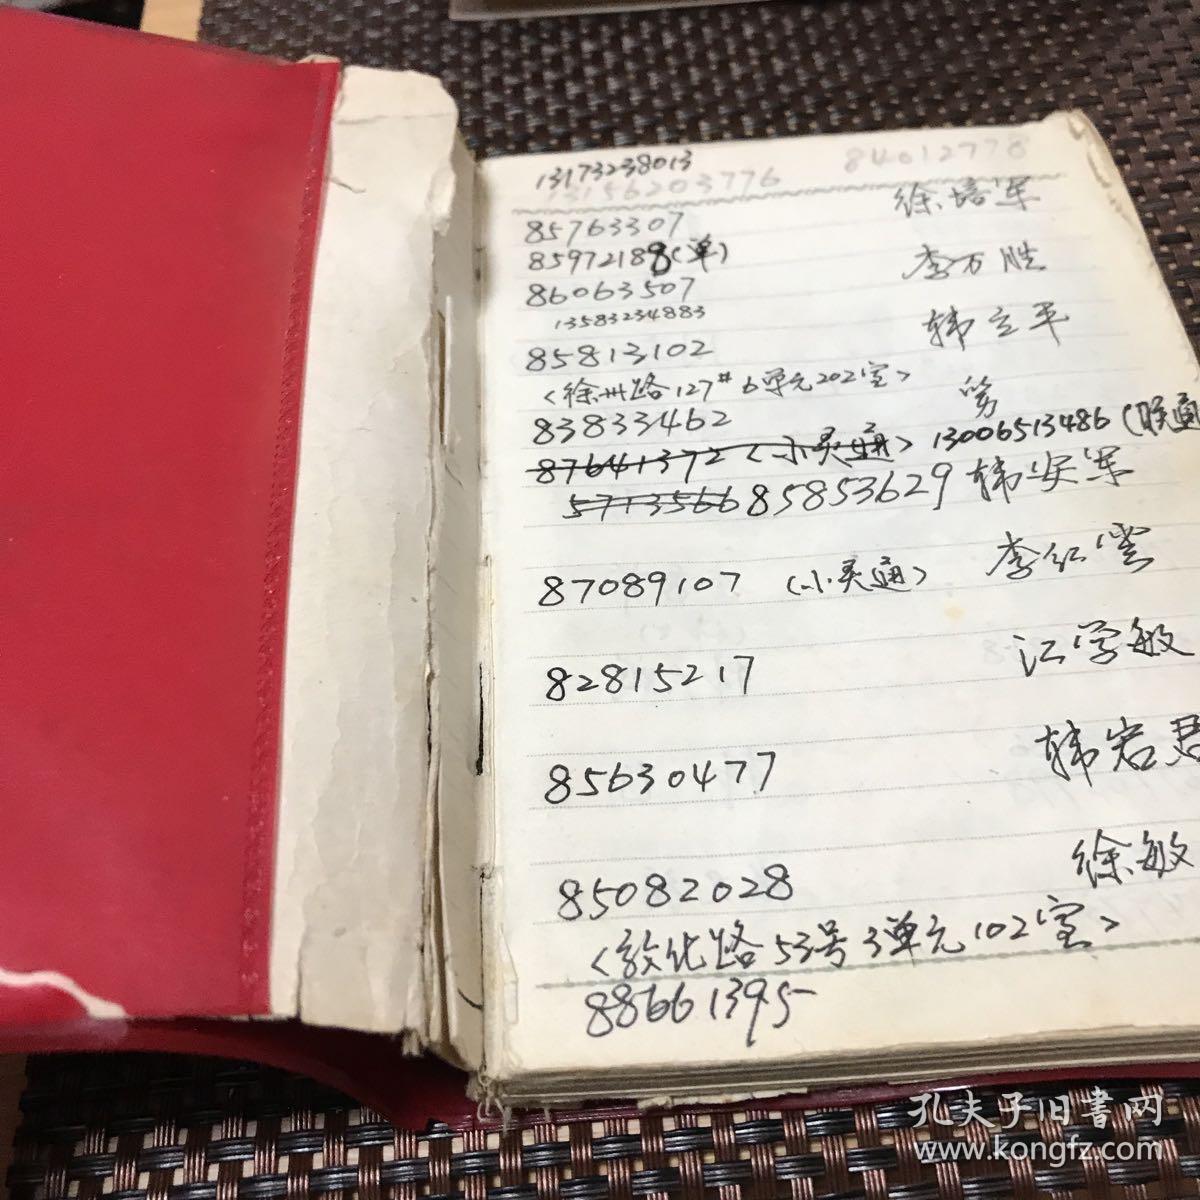 13173238013
13156203776 84012778
85763307 徐培军
85972188(单)
86063507 李万胜
13583234883
85813102 韩立平
<徐州路127# 6单元202室>
83833462
87641372 <小灵通> 13006513486 (联通
5713566 85853629 韩安军
87089107 (小灵通) 李红
82815217 江学敏
85630477 韩岩君
85082028 徐敏
<敦化路53号3单元102室>
88661395
孔夫子旧書网
www.kongfz.com